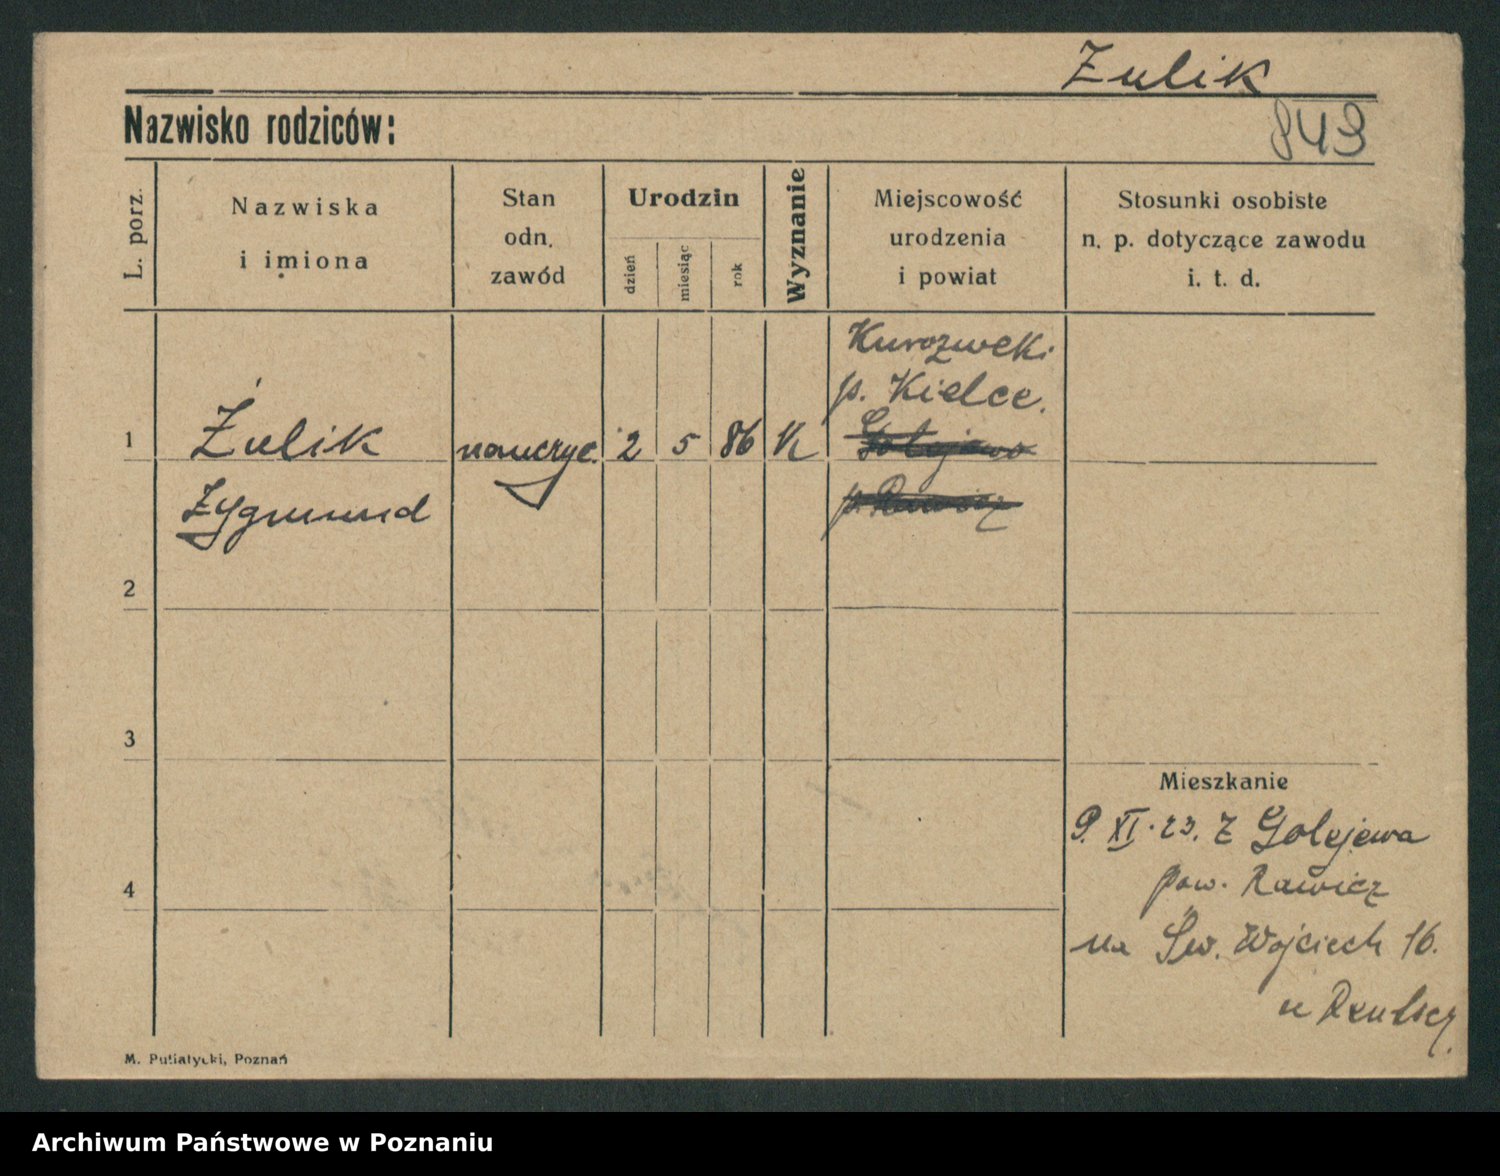 Żulik
Nazwisko rodziców:
843
L. porz.
Nazwiska
i imiona
Stan
odn.
zawód
Urodzin
dzień
miesiąc
rok
Wyznanie
Miejscowość
urodzenia
i powiat
Stosunki osobiste
n. p. dotyczące zawodu
i. t. d.
Kurozweki
p. Kielce.
1
Żulik
nauczyc.
2
5
86
K
Golejewo
Zygmund
p. Rawicz
2
3
Mieszkanie
9. XI. 23. Z Golejewa
4
pow. Rawicz
na Św. Wojciech 16.
u
M. Putiatycki, Poznań
Archiwum Państwowe w Poznaniu